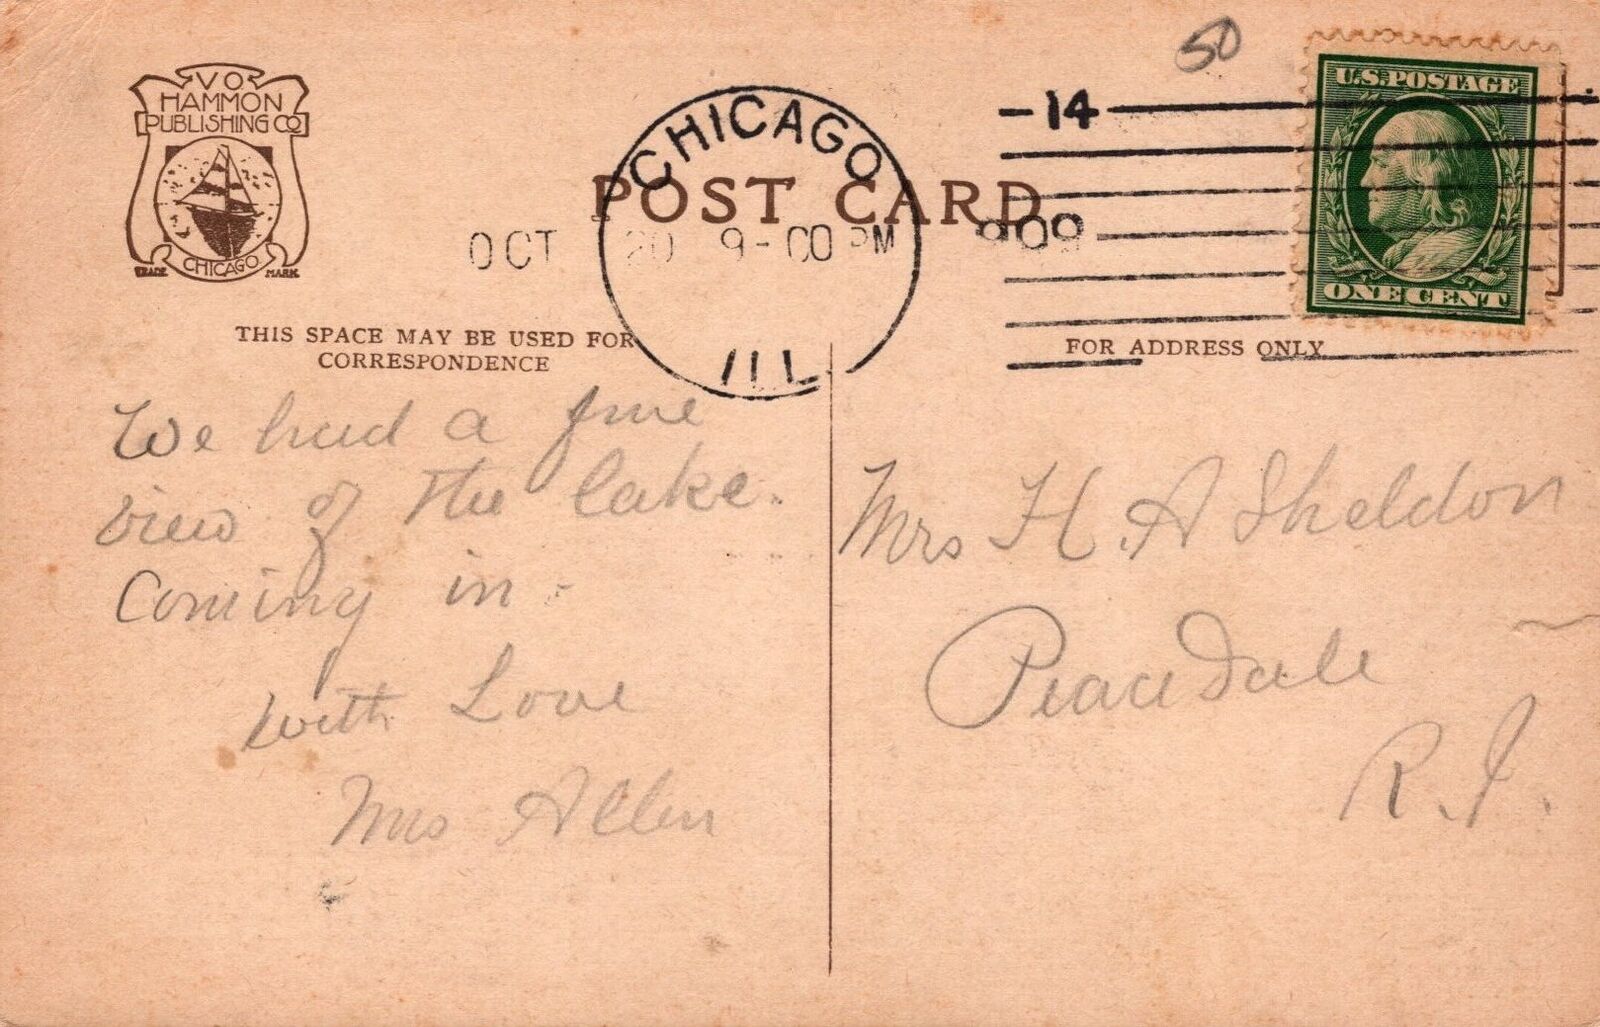 V O
HAMMON
PUBLISHING CO
CHICAGO
TRADE MARK
POST CARD
CHICAGO
ILL.
OCT 20 9-00 PM 1909
-14
50
U.S. POSTAGE
ONE CENT
THIS SPACE MAY BE USED FOR
CORRESPONDENCE
FOR ADDRESS ONLY
We had a fine
view of the lake.
Coming in -
with Love
Mrs Allen
Mrs H. A Sheldon
Peacedale
R.I.